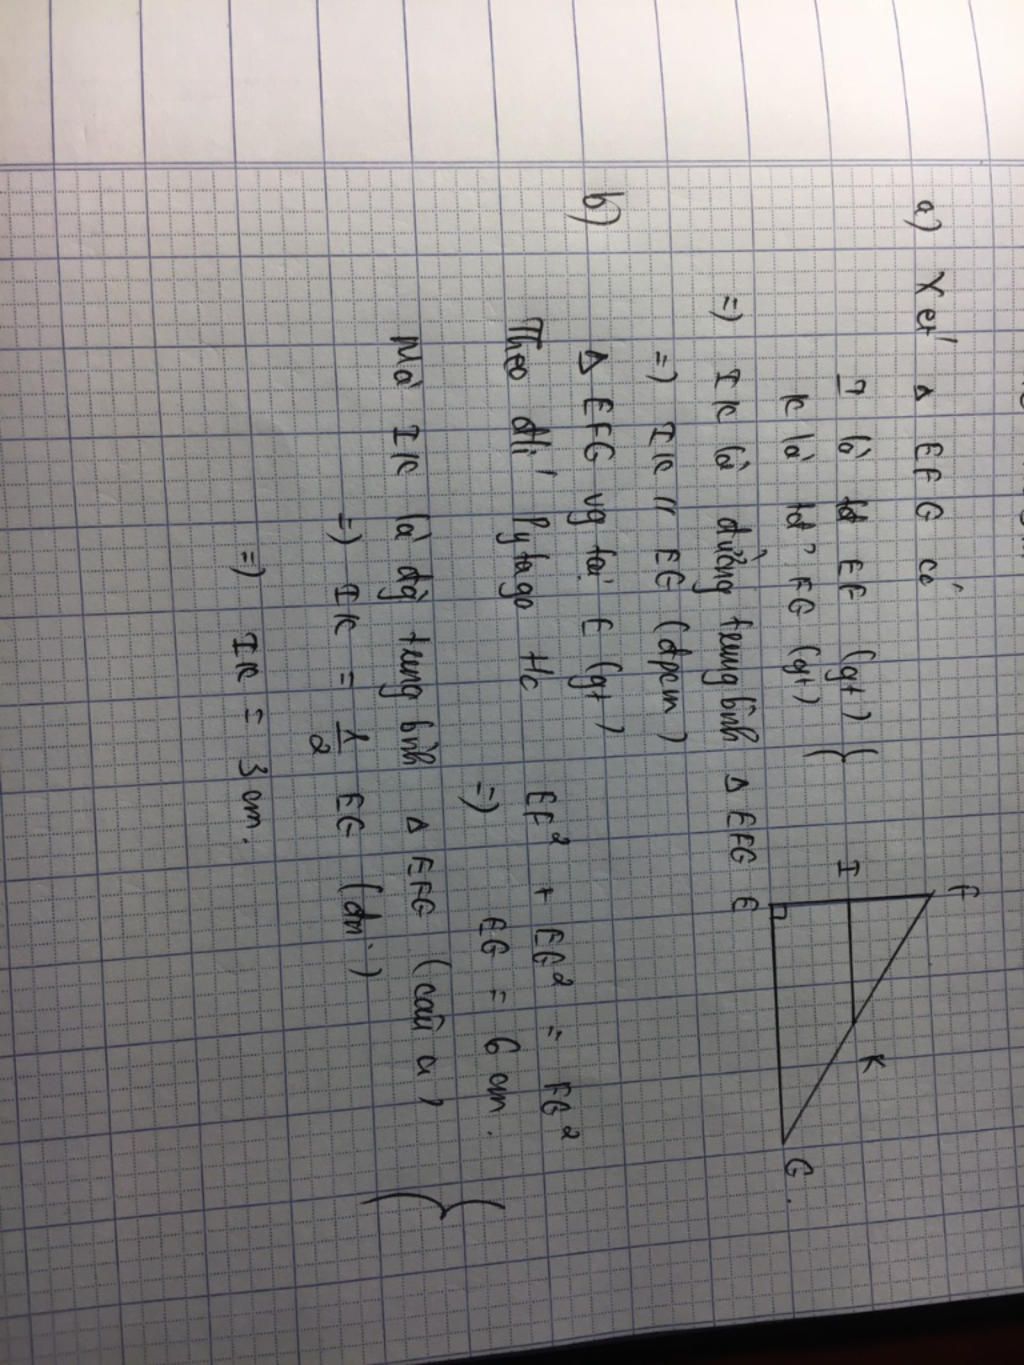 a) Xét Δ EFG có
I là tđ EF (gt)
K là tđ FG (gt)
=) IK là đường trung bình Δ EFG
=) IK // EG (đpcm)
F
I
K
E
G
b) Δ EFG vg tại E (gt)
Theo đlí Pytago
EF² + EG² = FG²
=) EG = 6 cm.
Mà IK là đg trung bình Δ EFG (câu a)
=) IK = 1/2 EG
=) IK = 3 cm.